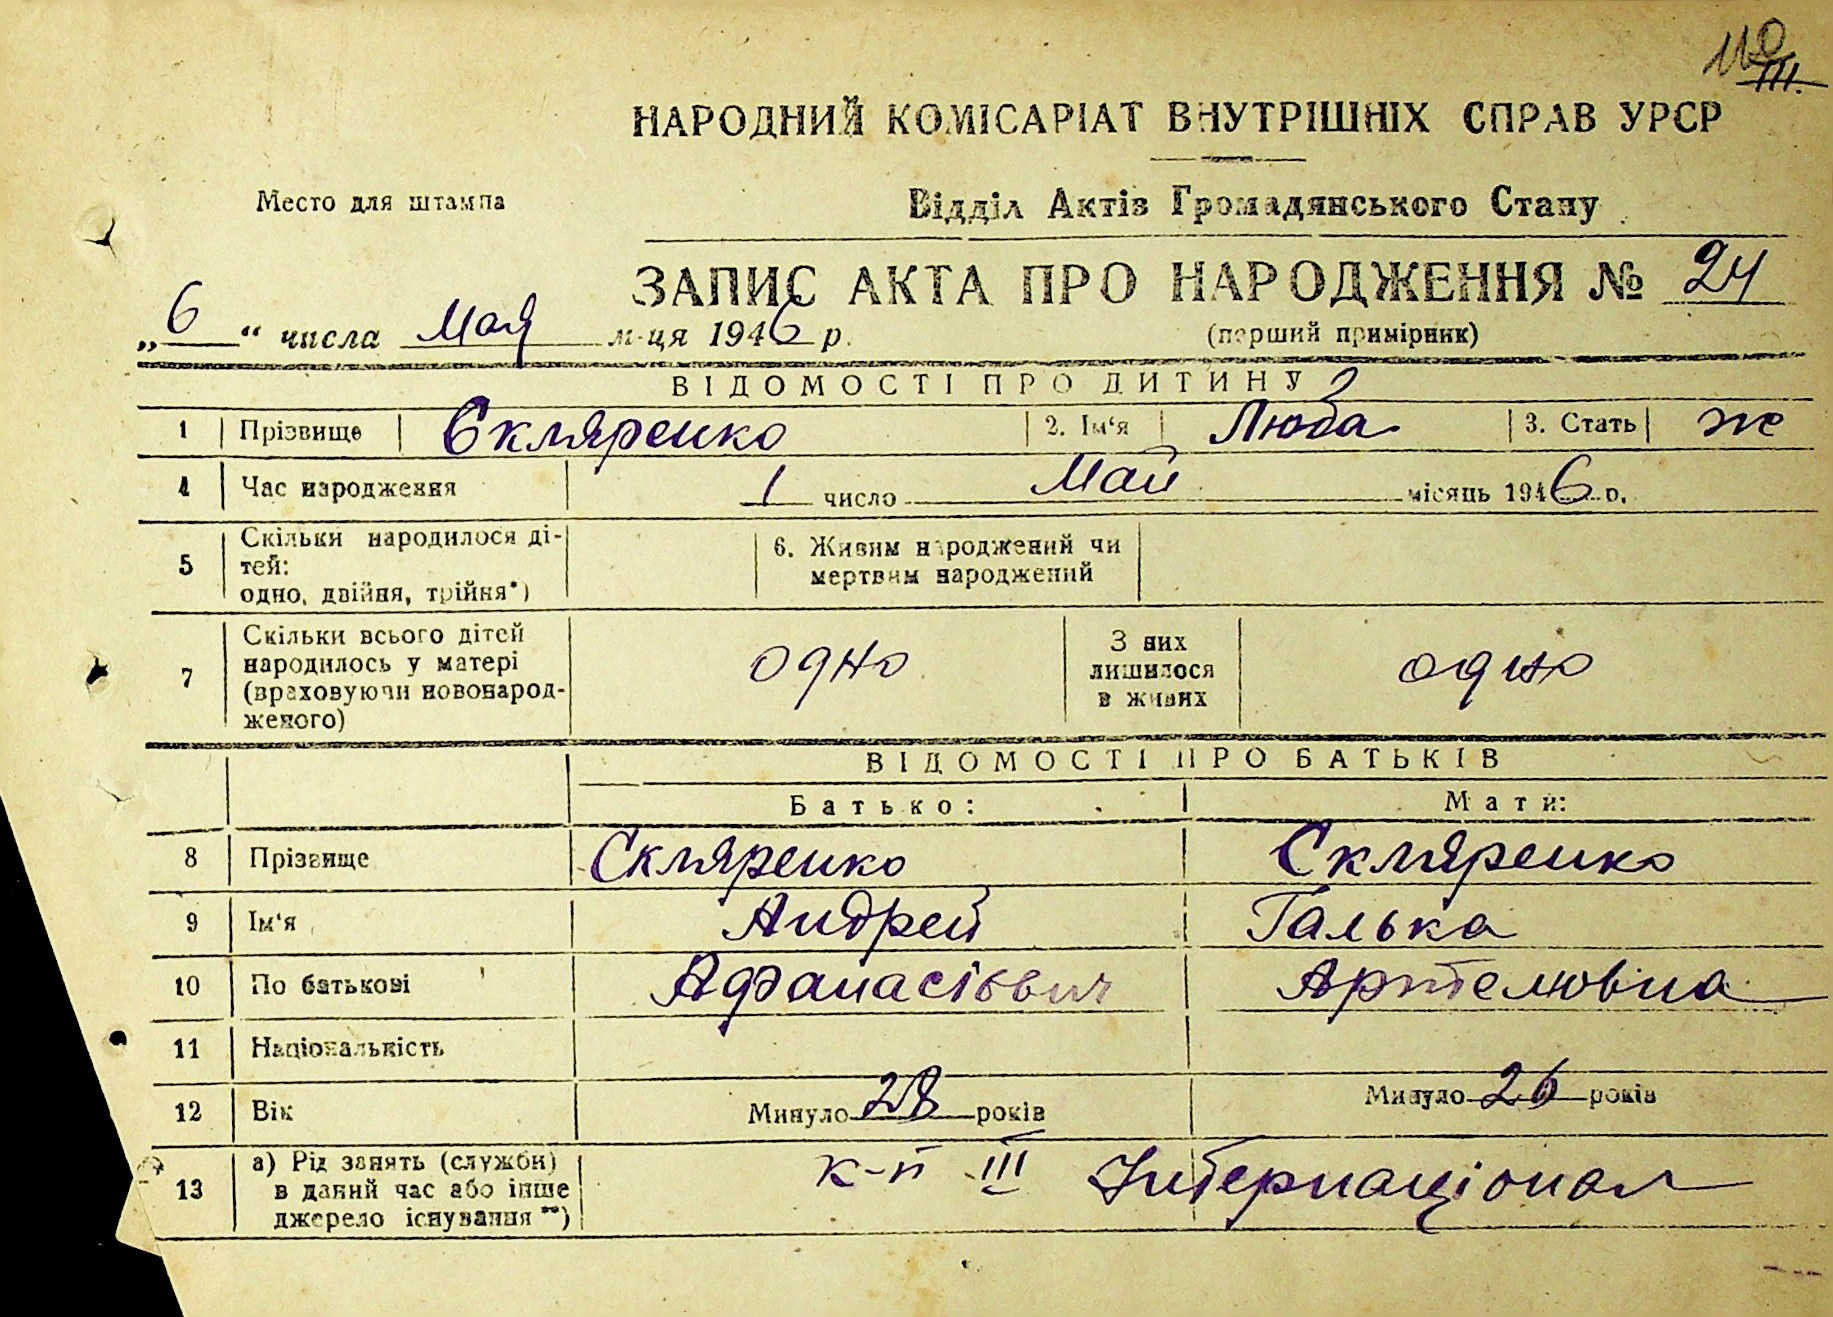 110
III.
НАРОДНИЙ КОМІСАРІАТ ВНУТРІШНІХ СПРАВ УРСР
Место для штампа
Відділ Актів Громадянського Стану
ЗАПИС АКТА ПРО НАРОДЖЕННЯ № 24
„6“ числа Мая м-ця 1946 р.
(перший примірник)
ВІДОМОСТІ ПРО ДИТИНУ
1 Прізвище Скляренко 2. Ім‘я Люба 3. Стать ж
4 Час народження 1 число Май місяць 1946 р.
5 Скільки народилося ді-
тей:
одно, двійня, трійня*)
6. Живим народжений чи
мертвим народжений
7 Скільки всього дітей
народилось у матері
(враховуючи новонарод-
женого)
одно
З них
лишилося
в живих
одно
ВІДОМОСТІ ПРО БАТЬКІВ
Батько: Мати:
8 Прізвище Скляренко Скляренко
9 Ім‘я Андрей Галька
10 По батькові Афанасівич Артемовіна
11 Національність
12 Вік Минуло 28 років Минуло 26 років
13 а) Рід занять (служби)
в даний час або інше
джерело існування **)
к-п III Інтернаціонал